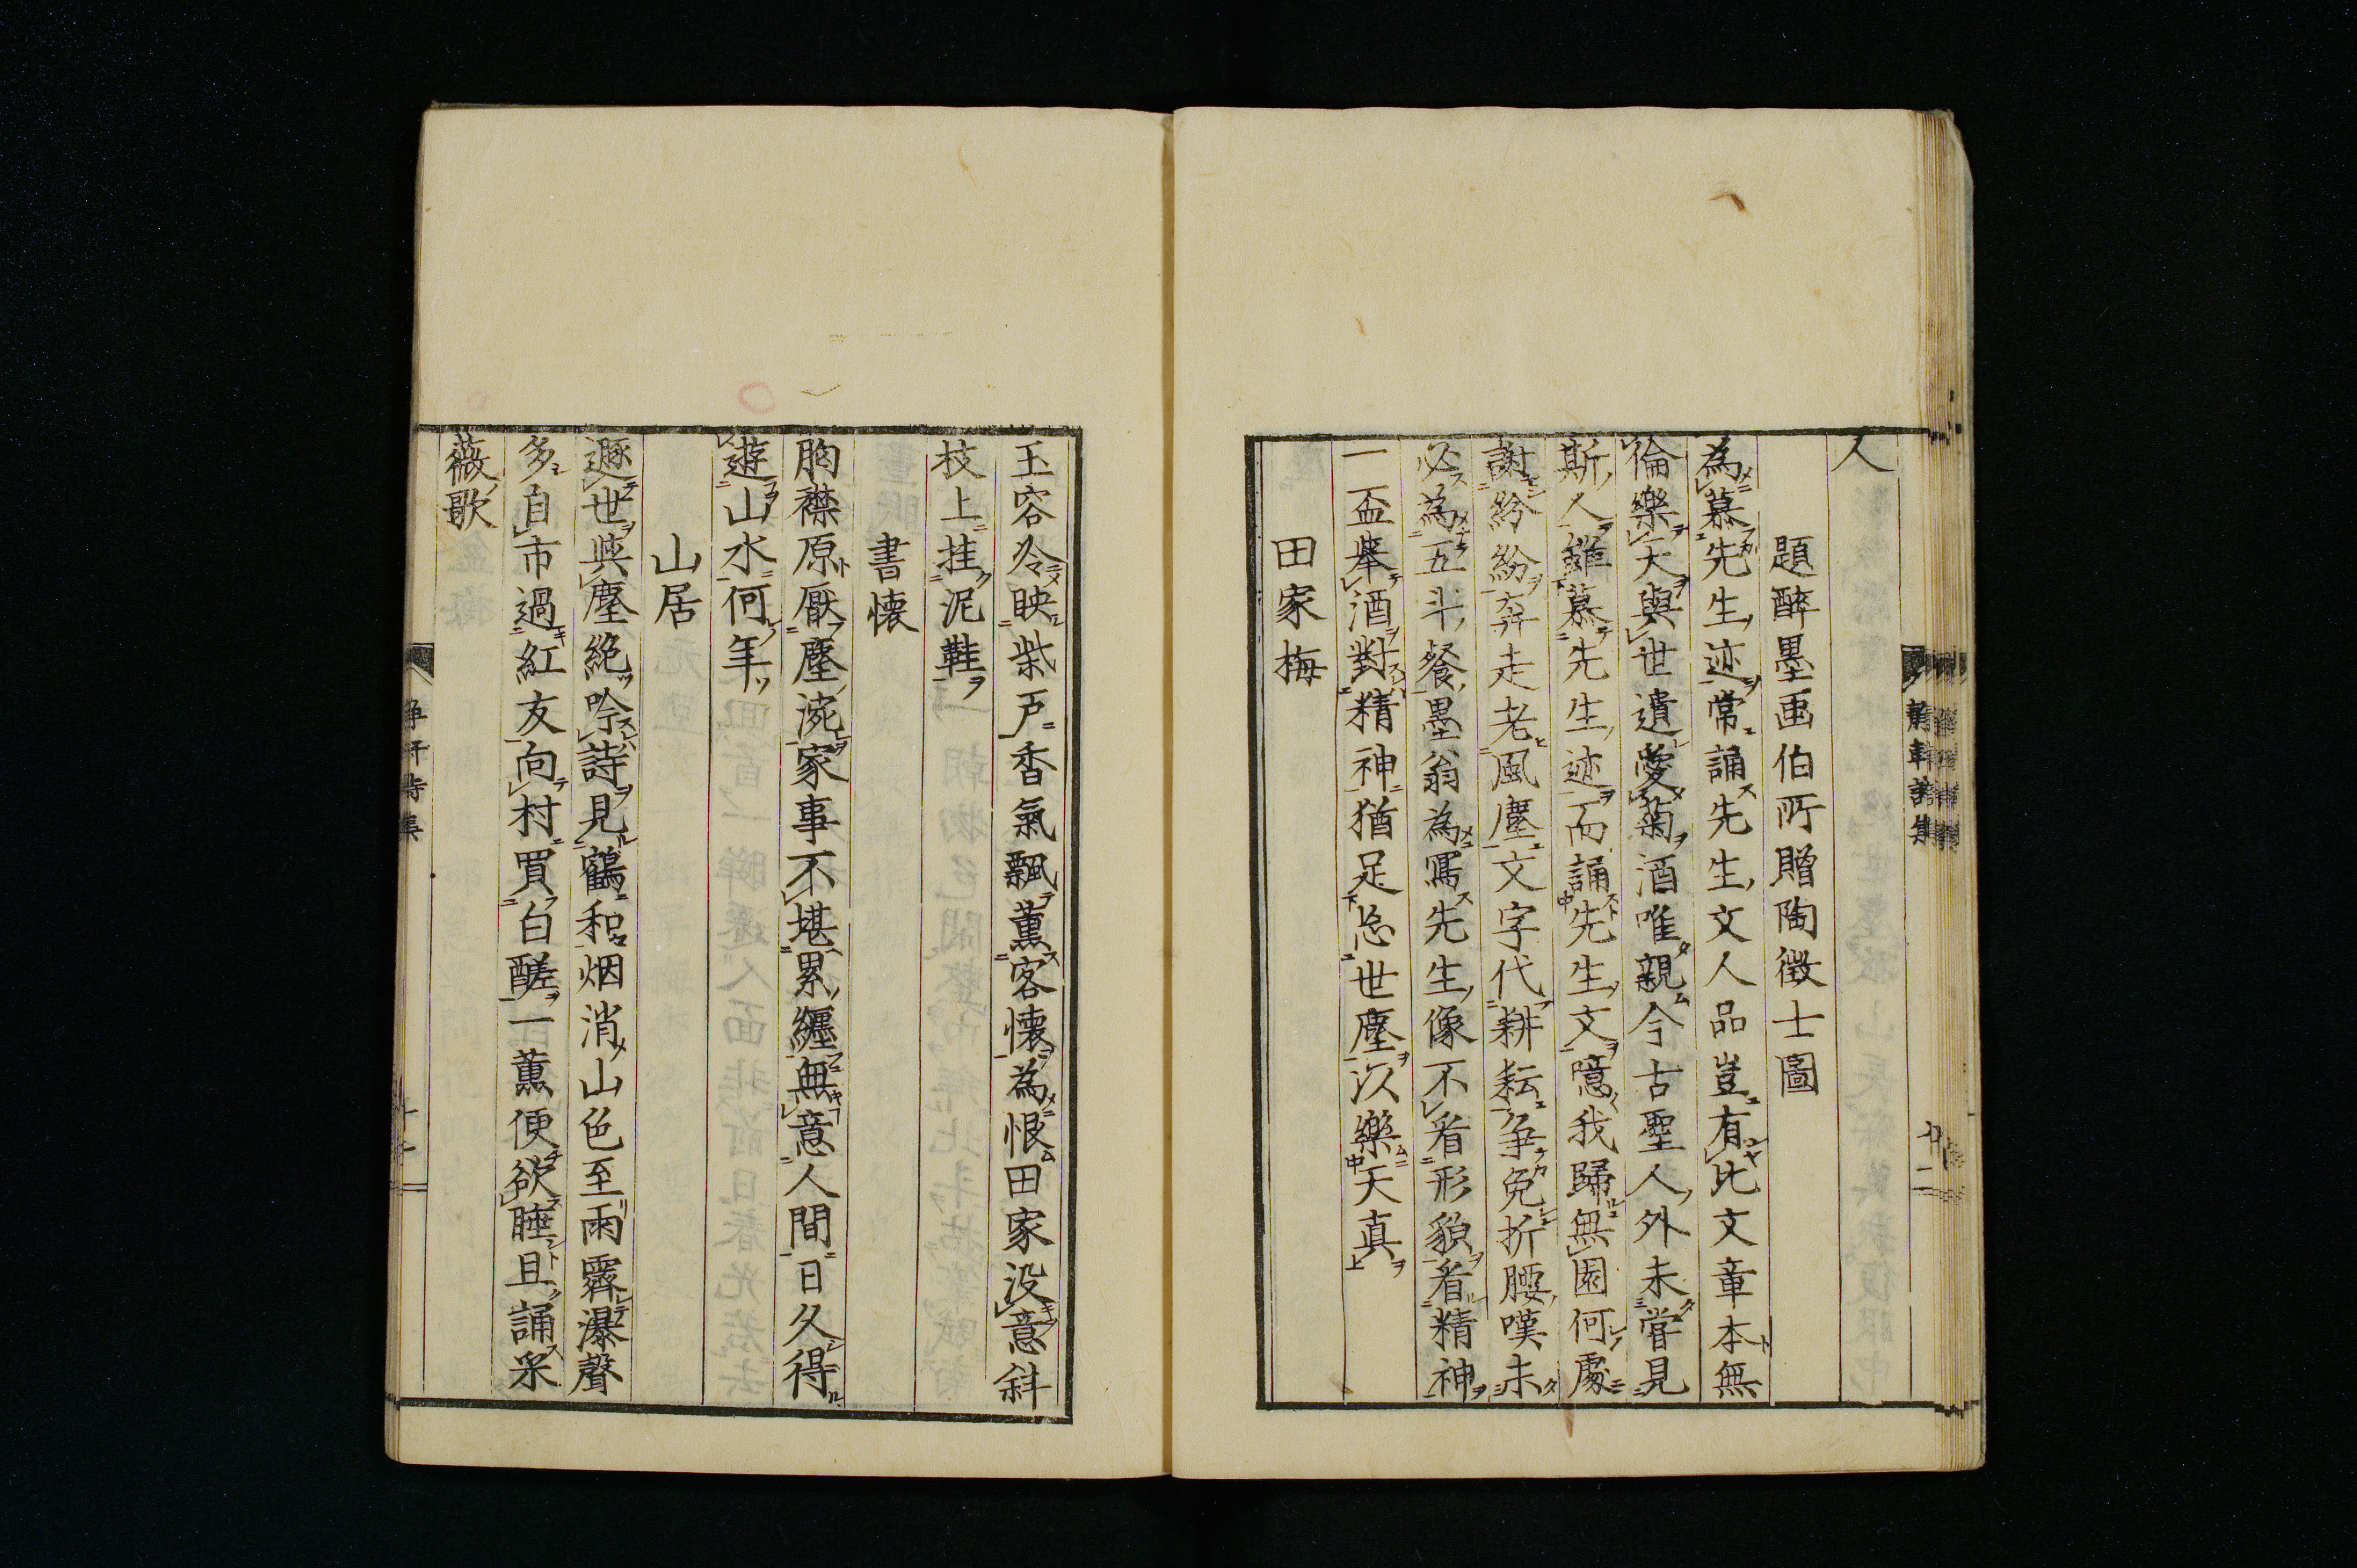 人
題醉墨画伯所贈陶徵士圖
為慕先生迹常誦先生文人品豈有比文章本無
倫樂天與世遺愛菊酒唯親今古聖人外未嘗見
斯人雖慕先生迹而誦先生文噫我歸無園何處
謝紛紛奔走老風塵文字代耕耘争免折腰嘆未
必為五斗餐墨翁為寫先生像不看形貌看精神
一盃挙酒對精神猶足忘世塵以樂天真
田家梅
玉容令映柴戸香氣飄薫客懐為恨田家没意斜
枝上挂泥鞋
書懐
胸襟原厭塵涴家事不堪累纏無意人間日久得
遊山水何年
山居
遯世與塵絶吟詩見鶴和烟消山色至雨霽瀑聲
多自市過紅友向村買白醝一薫便欲睡且誦采
薇歌